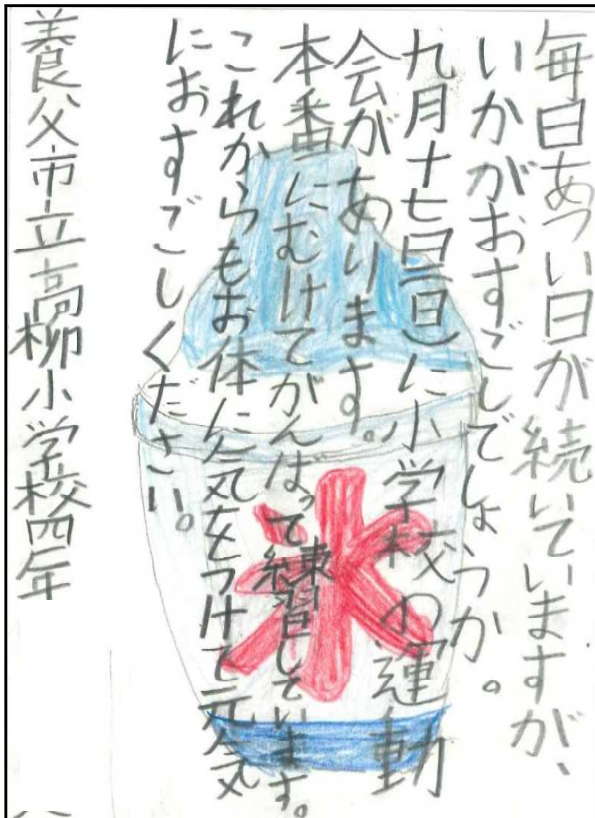 毎日あつい日が続いていますが、
いかがおすごしでしょうか。
九月十七日(日)に小学校の運動
会があります。
本番にむけてがんばって練習しています。
これからもお体に気をつけて元気
におすごしください。
養父市立高柳小学校四年
氷